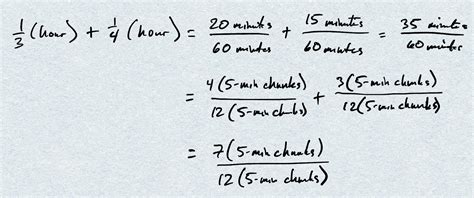 1/3 (hour) + 1/4 (hour) = 20 minutes/60 minutes + 15 minutes/60 minutes = 35 minutes/60 minutes
= 4 (5-min chunks)/12 (5-min chunks) + 3 (5-min chunks)/12 (5-min chunks)
= 7 (5-min chunks)/12 (5-min chunks)